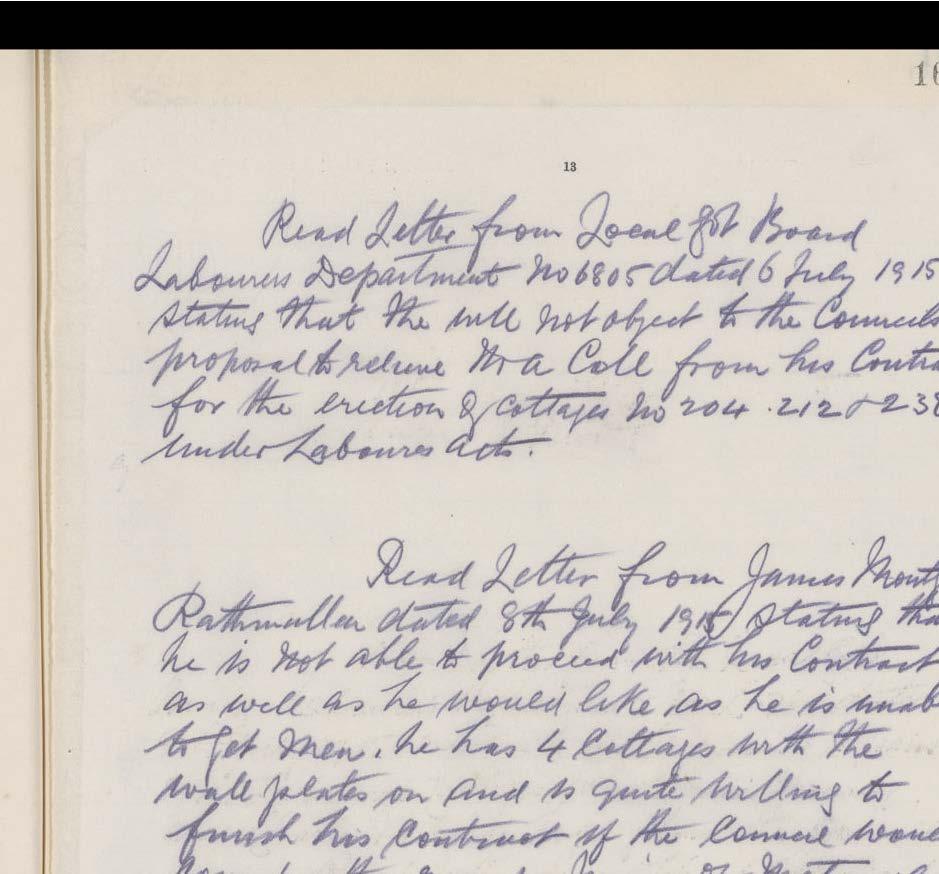 16
13
Read Letter from Local Govt Board
Labourers Department No 6805 dated 6 July 1915
stating that the will not object to the Councils
proposal to relieve Mr A Coll from his Contra
for the erection of Cottages No 204. 212 & 238
under Laboures Acts.
Read Letter from James Mont
Rathmullen dated 8th July 1915 stating tha
he is not able to proceed with his Contract
as well as he would like, as he is unab
to get men. he has 4 Cottages with the
wall plates on and is quite willing to
finish his Contract if the Council woul